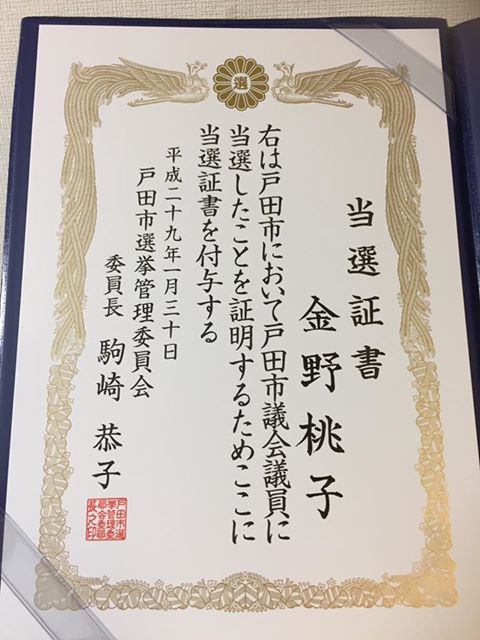 選
当選証書
金野桃子
右は戸田市において戸田市議会議員に
当選したことを証明するためここに
当選証書を付与する
平成二十九年一月三十日
戸田市選挙管理委員会
委員長 駒崎 恭子
戸田市選
挙管理委
員会委員
長之印